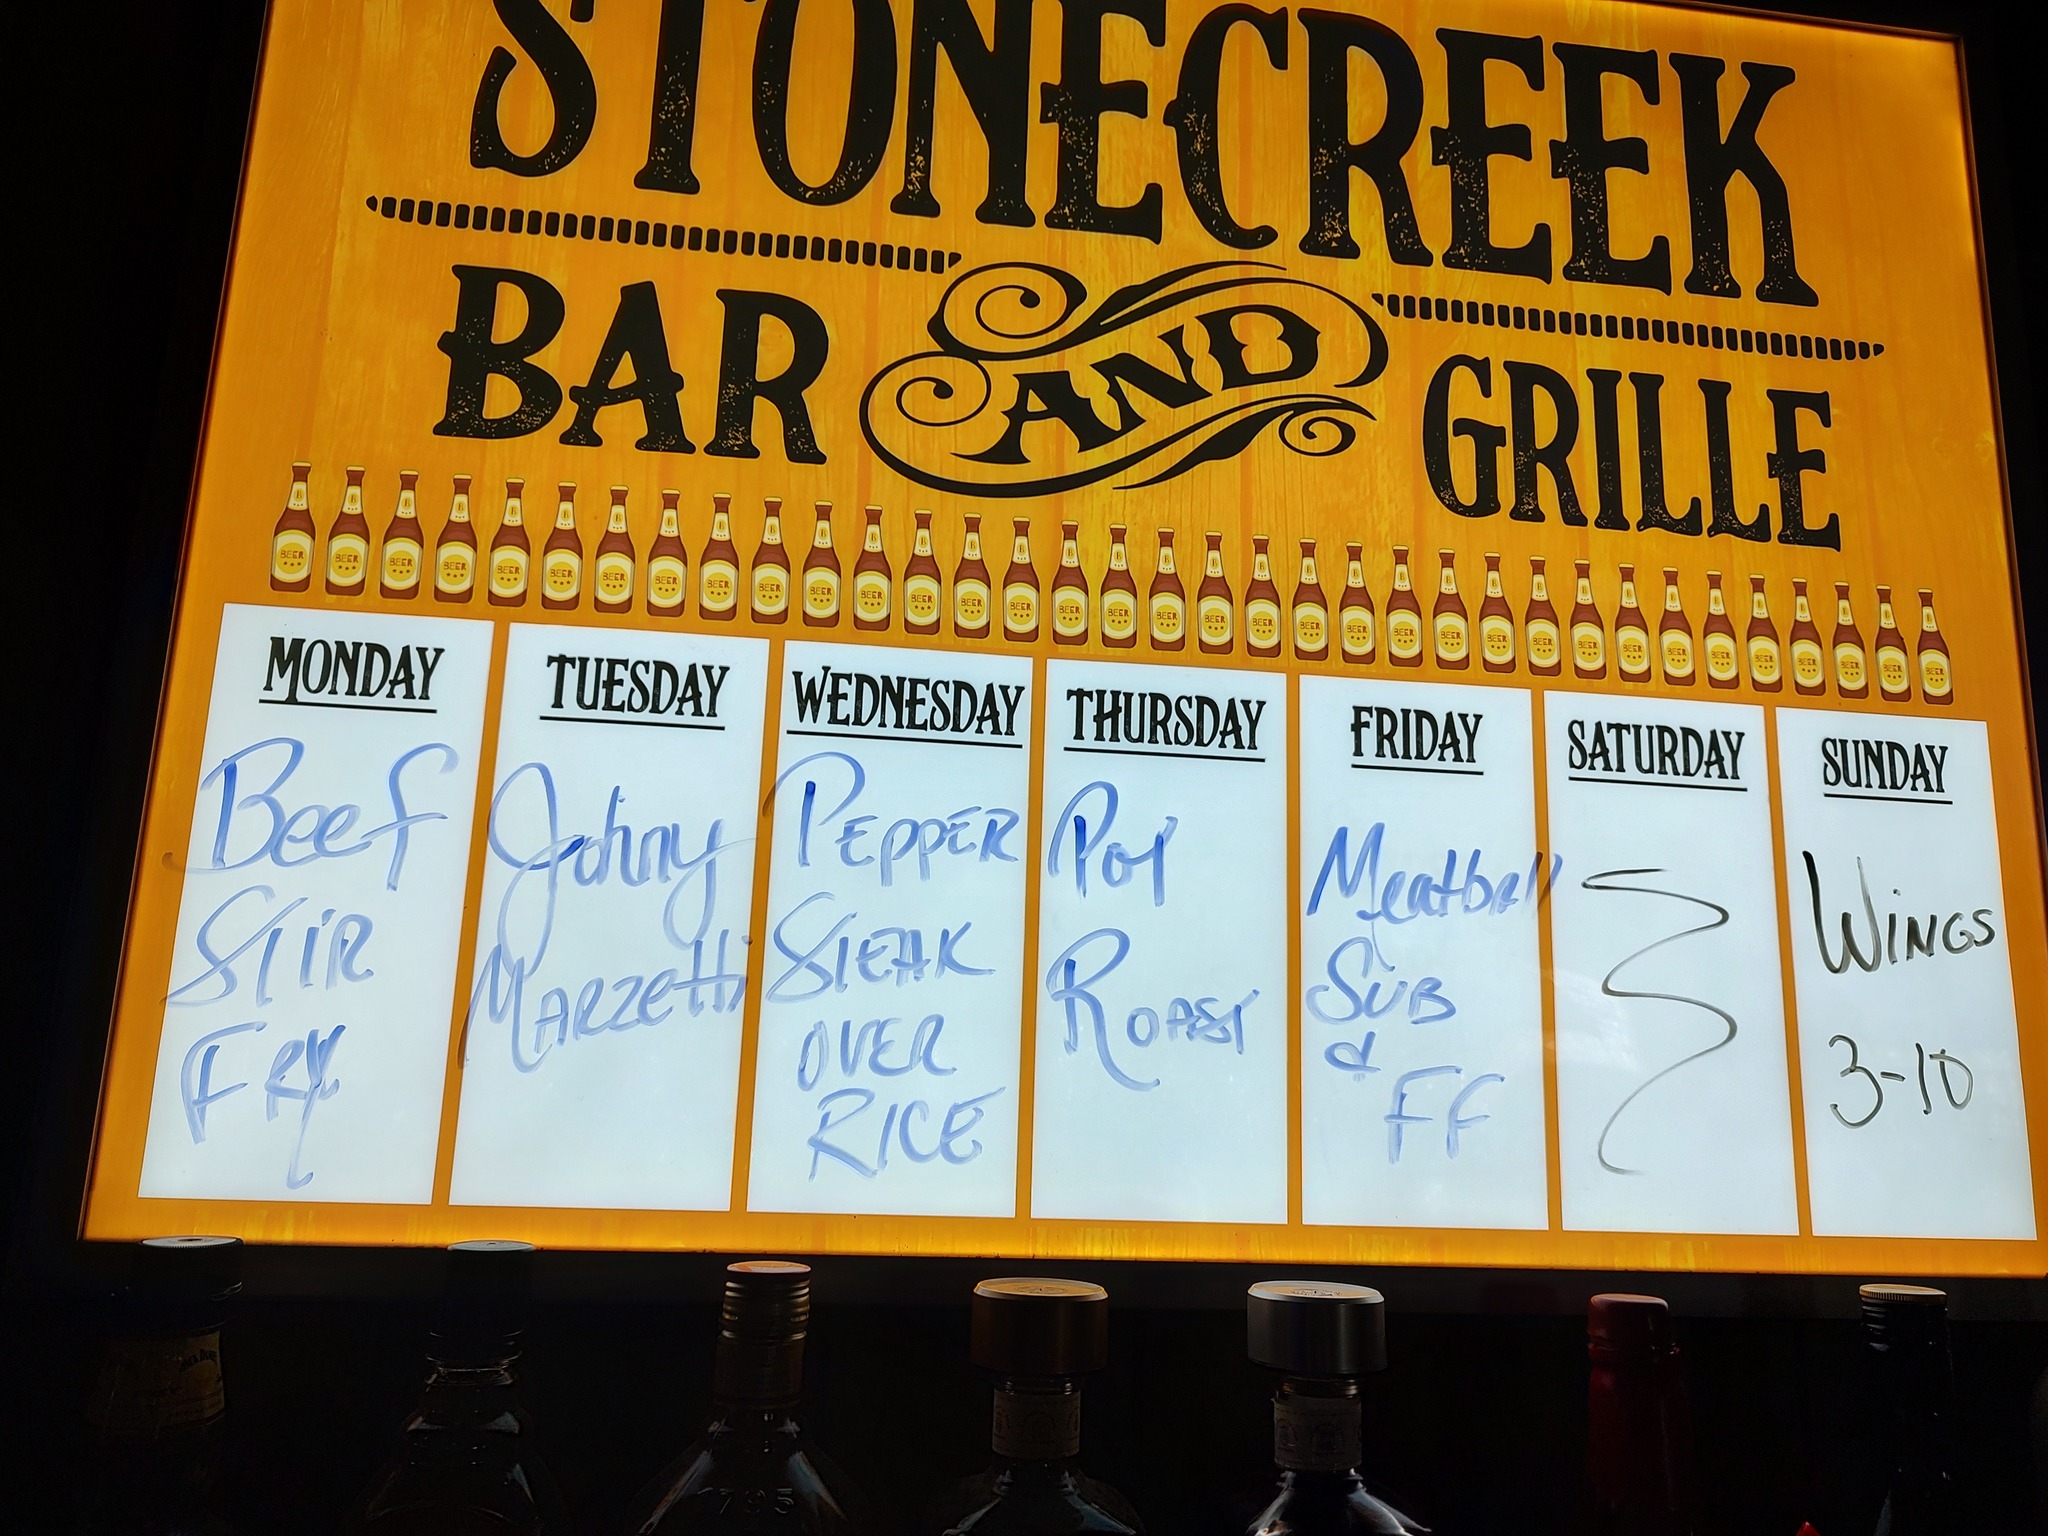 STONECREEK
BAR AND GRILLE
MONDAY
Beef
Stir
Fry
TUESDAY
Johny
Marzetti
WEDNESDAY
PEPPER
STEAK
OVER
RICE
THURSDAY
Pot
Roast
FRIDAY
Meatball
SUB
&
FF
SATURDAY
SUNDAY
WINGS
3-10